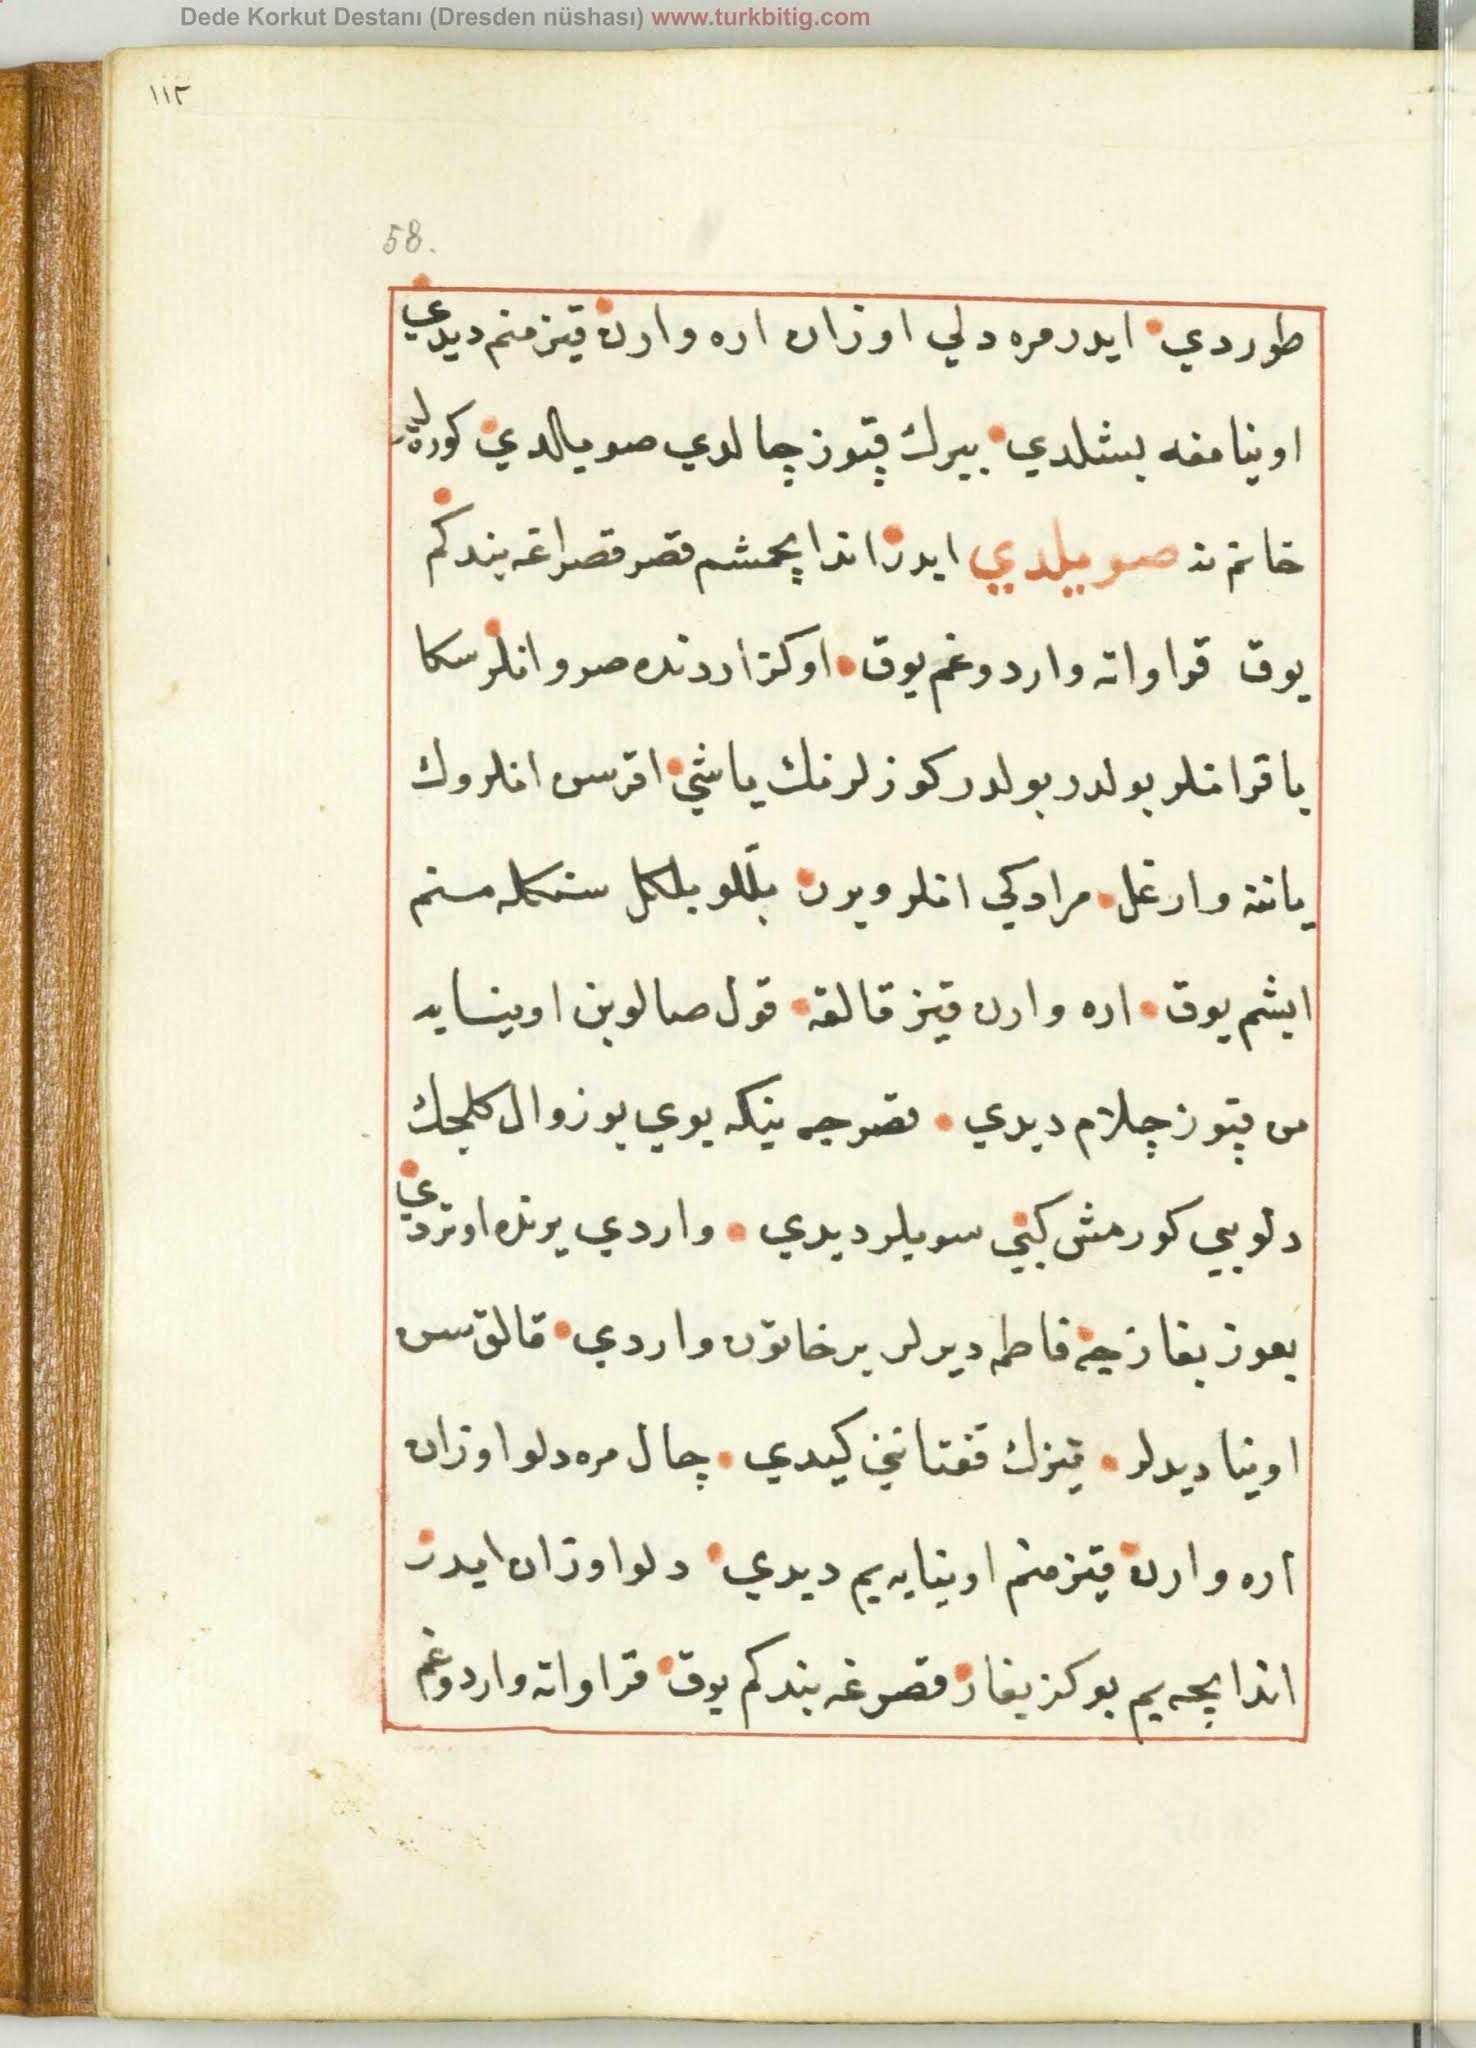 Dede Korkut Destanı (Dresden nüshası) www.turkbitig.com
١١٢
58.
طوردي ایدر مره دلي اوزان اره وارن قیز منم دیدي
اوینامغه بشلدي بیرك قپوز چالدي صویالدي کوره لم
خانم نه صویلدي ایدر اندا یچمشم قصر قصراغه بندکم
یوق قراواته واردوغم یوق اوکز اردنده صرو انلر سکا
باقرانلر بولدر بولدر کوزلرنك یاشي اقرسن انلروك
یاننه وارغل مرادکي انلر ویرن بللو بلکل سنکله منم
ایشم یوق اره وارن قیز قالقه قول صالوبن اوینایه
من قپوز چلام دیدي قصرجه ینکه بوي بوزوال کلجك
دلو بیي کورمش کبي سویلر دیدي واردي یرنده اوتردي
بعوز بغازجه فاطمه دیرلر بر خاتون واردي قالق سن
اوینا دیدلر قیزك قفتانني کیدي چال مره دلو اوزان
اره وارن قیز منم اوینایه یم دیدي دلو اوزان ایدر
اندا یچه یم بوکز بغاز قصرغه بندکم یوق قراواته واردوغم